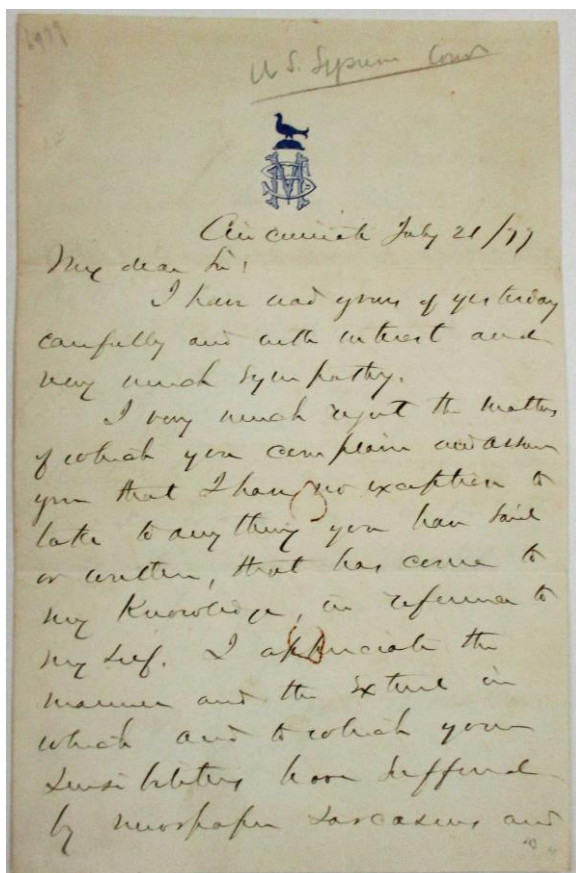 U S. Supreme Court
Cincinnati July 21/77
My dear Sir!
I have read yours of yesterday
carefully and with interest and
very much sympathy.
I very much regret the matters
of which you complain and assure
you that I have no exception to
take to anything you have said
or written, that has come to
my knowledge, in reference to
myself. I appreciate the
manner and the extent in
which and to which your
sensibilities have suffered
by newspaper sarcasms and